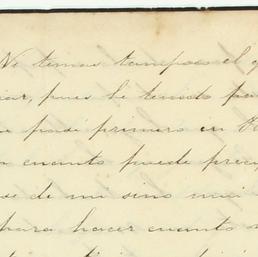 No temas tampoco el q
car, pues he tenido pa
se pasé primero en
n cuanto puede preci
se de mi sino mui
para hacer cuanto